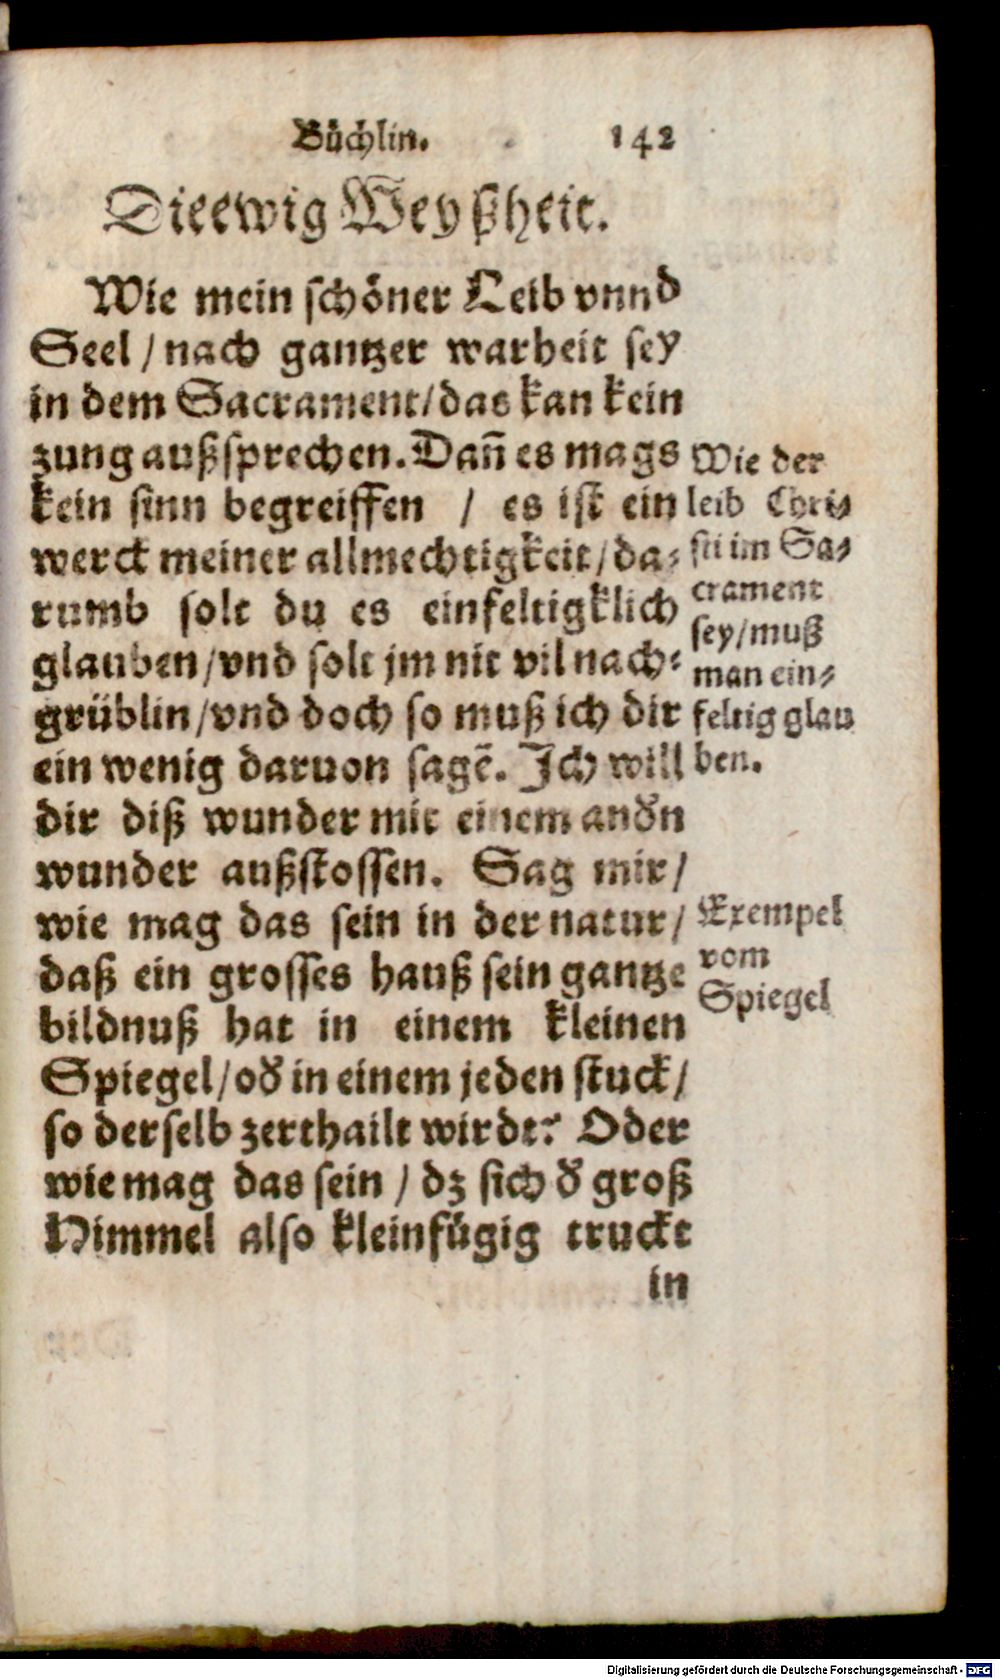 Büchlin. 142
Die ewig Weyßheit.
Wie mein schöner Leib vnnd
Seel / nach gantzer warheit sey
in dem Sacrament / das kan kein
zung außsprechen. Dañ es mags
kein sinn begreiffen / es ist ein
werck meiner allmechtigkeit / da-
rumb solt du es einfeltigklich
glauben / vnd solt jm nit vil nach-
grüblin / vnd doch so muß ich dir
ein wenig daruon sagẽ. Ich will
dir diß wunder mit einem andn
wunder außstossen. Sag mir /
wie mag das sein in der natur /
daß ein grosses hauß sein gantze
bildnuß hat in einem kleinen
Spiegel / od in einem jeden stuck /
so derselb zerthailt wirdt? Oder
wie mag das sein / dz sich d groß
Himmel also kleinfügig truckt
in
Wie der
leib Chri-
sti im Sa-
crament
sey / muß
man ein-
feltig glau
ben.
Exempel
vom
Spiegel
Digitalisierung gefördert durch die Deutsche Forschungsgemeinschaft - DFG